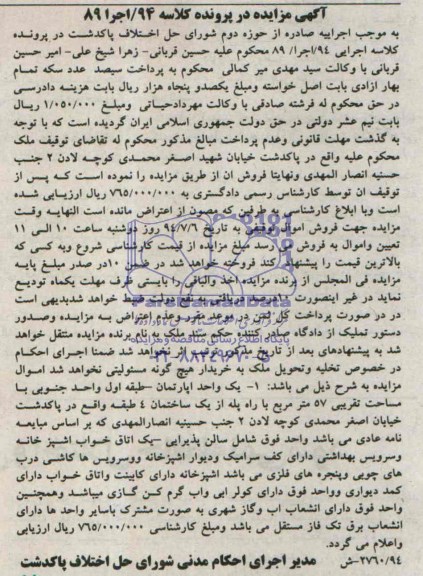 آگهی مزایده در پرونده کلاسه ۹۴/اجرا ۸۹
به موجب اجراییه صادره از حوزه دوم شورای حل اختلاف پاکدشت در پرونده
کلاسه اجرایی ۹۴/اجرا/ ۸۹ محکوم علیه حسین قربانی- زهرا شیخ علی- امیر حسین
قربانی با وکالت سید مهدی میر کمالی محکوم به پرداخت سیصد عدد سکه تمام
بهار ازادی بابت اصل خواسته ومبلغ یکصدو پنجاه هزار ریال بابت هزینه دادرسی
در حق محکوم له فرشته صادقی با وکالت مهردادحیاتی ومبلغ ۱/۰۵۰/۰۰۰ ریال
بابت نیم عشر دولتی در حق دولت جمهوری اسلامی ایران گردیده است که با توجه
به گذشت مهلت قانونی وعدم پرداخت مبالغ مذکور محکوم له تقاضای توقیف ملک
محکوم علیه واقع در پاکدشت خیابان شهید اصغر محمدی کوچه لادن ۲ جنب
حسنیه انصار المهدی ونهایتا فروش ان از طریق مزایده را نموده است که پس از
توقیف ان توسط کارشناس رسمی دادگستری به ۷۶۵/۰۰۰/۰۰۰ ریال ارزیابی شده
است وبا ابلاغ کارشناسی به طرفین که مصون از اعتراض مانده است النهایه وقت
مزایده جهت فروش اموال توقیفی به تاریخ ۹۴/۷/۶ روز دوشنبه ساعت ۱۰ الی ۱۱
تعیین واموال به فروش می رسد مبلغ مزایده از قیمت کارشناسی شروع وبه کسی که
بالاترین قیمت را پیشنهاد کند فروخته خواهد شد در ضمن ۱۰در صدر مبلغ پایه
مزایده فی المجلس از برنده مزایده اخذ والباقی را بایستی ظرف مهلت یکماه تودیع
نماید در غیر اینصورت ۱۰درصد دریافتی به نفع دولت ضبط خواهد شدبدیهی است
در در صورت پرداخت کل ثمن در موعد مقرر وعدم اعتراض به مزایده وصدور
دستور تملیک از دادگاه صادر کننده حکم سند ملک به نام برنده مزایده منتقل خواهد
شد به پیشنهادهای بعد از تاریخ مذکور ترتیب اثر نخواهد شد ضمنا اجرای احکام
در خصوص تخلیه وتحویل ملک به خریدار هیچ گونه مسئولیتی نخواهد شد اموال
مزایده به شرح ذیل می باشد: ۱- یک واحد اپارتمان -طبقه اول واحد جنوبی با
مساحت تقریبی ۵۷ متر مربع با راه پله از یک ساختمان ۴ طبقه واقع در پاکدشت
خیابان اصغر محمدی کوچه لادن ۲ جنب حسینیه انصارالمهدی که بر اساس مبایعه
نامه عادی می باشد واحد فوق شامل سالن پذیرایی -یک اتاق خواب اشپز خانه
وسرویس بهداشتی دارای کف سرامیک ودیوار اشپزخانه ووسرویس ها کاشی درب
های چوبی وپنجره های فلزی می باشد اشپزخانه دارای کابینت واتاق خواب دارای
کمد دیواری وواحد فوق دارای کولر ابی واب گرم کن گازی میباشد وهمچنین
واحد فوق دارای انشعاب اب وگاز شهری به صورت مشترک باسایر واحد ها دارای
انشعاب برق تک فاز مستقل می باشد ومبلغ کارشناسی ۷۶۵/۰۰۰/۰۰۰ ریال ارزیابی
واعلام می گردد.
۲۷۶۰/۹۴-ش مدیر اجرای احکام مدنی شورای حل اختلاف پاکدشت